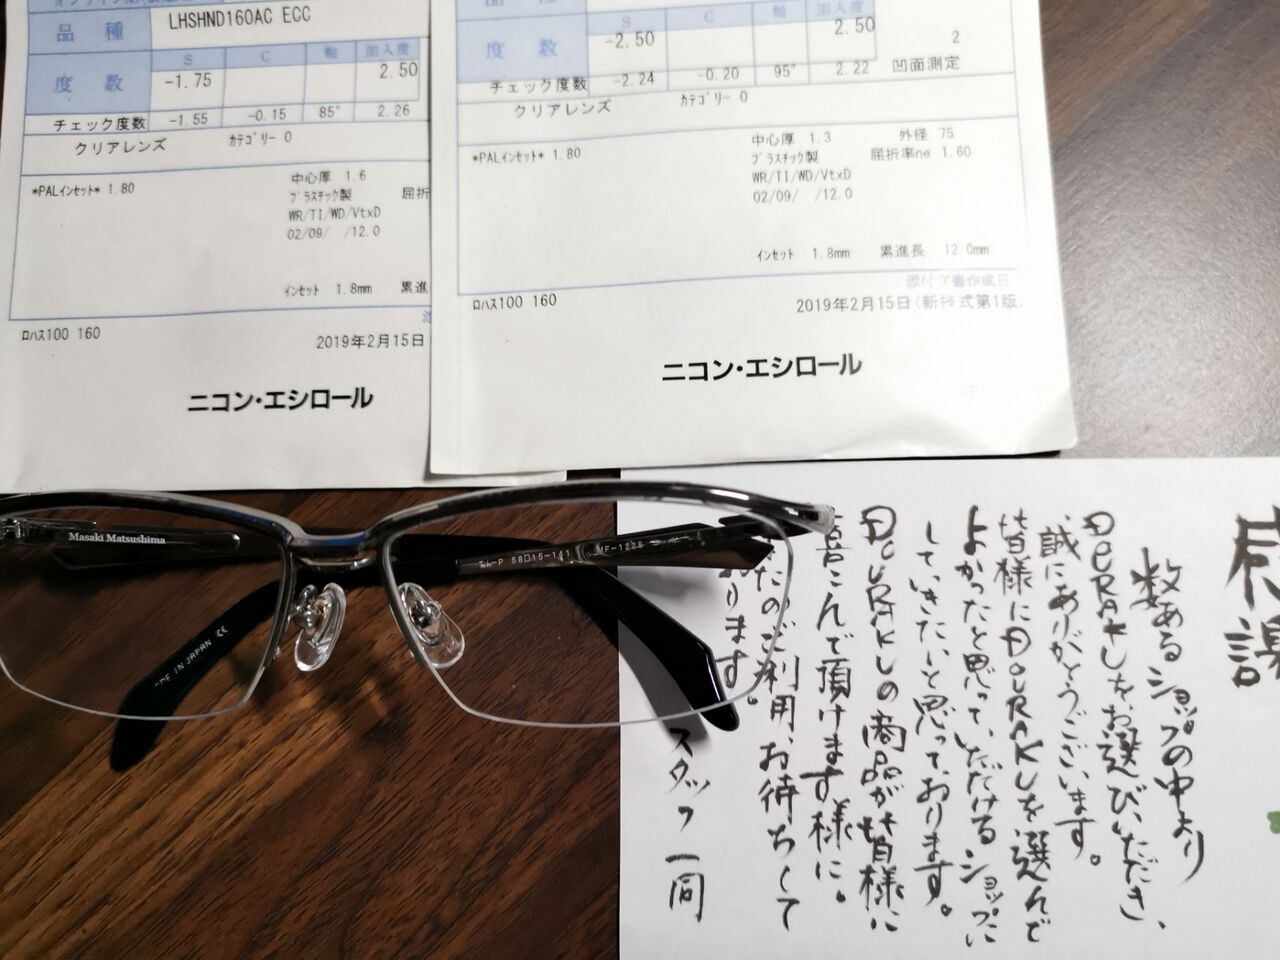 品種 LHSHND160AC ECC
S C 軸 加入度
度数 -1.75 2.50
チェック度数 -1.55 -0.15 85° 2.26
クリアレンズ カテゴリー 0
*PALインセット* 1.80
中心厚 1.6
プラスチック製 屈折
WR/TI/WD/VtxD
02/09/ /12.0
インセット 1.8mm 累進
ロハス100 160
2019年2月15日
ニコン・エシロール
S C 軸 加入度
度数 -2.50 2.50 2
チェック度数 -2.24 -0.20 95° 2.22 凹面測定
クリアレンズ カテゴリー 0
*PALインセット* 1.80
中心厚 1.3 外径 75
プラスチック製 屈折率ne 1.60
WR/TI/WD/VtxD
02/09/ /12.0
インセット 1.8mm 累進長 12.0mm
添付文書作成日
ロハス100 160
2019年2月15日(新様式第1版)
ニコン・エシロール
Masaki Matsushima
58□15-141 MF-1228
IN JAPAN CE
感謝
数あるショップの中より
DOURAKUをお選びいただき、
誠にありがとうございます。
皆様にDOURAKUを選んで
よかったと思って、いただけるショップに
していきたいと思っております。
DOURAKUの商品が皆様に
喜こんで頂けます様に。
たのご利用、お待ちして
ります。
スタッフ一同